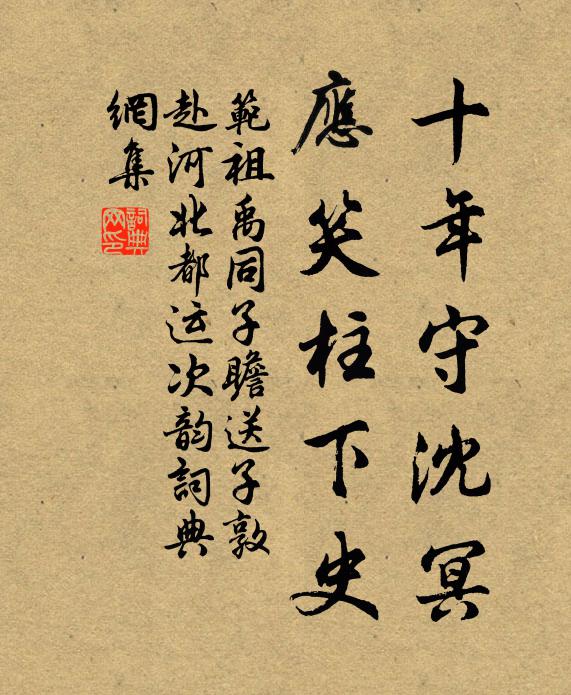 十年守沈冥
應笑柱下史
範祖禹同子瞻送子敦
赴河北都运次韵詞典
網集
詞典
网印